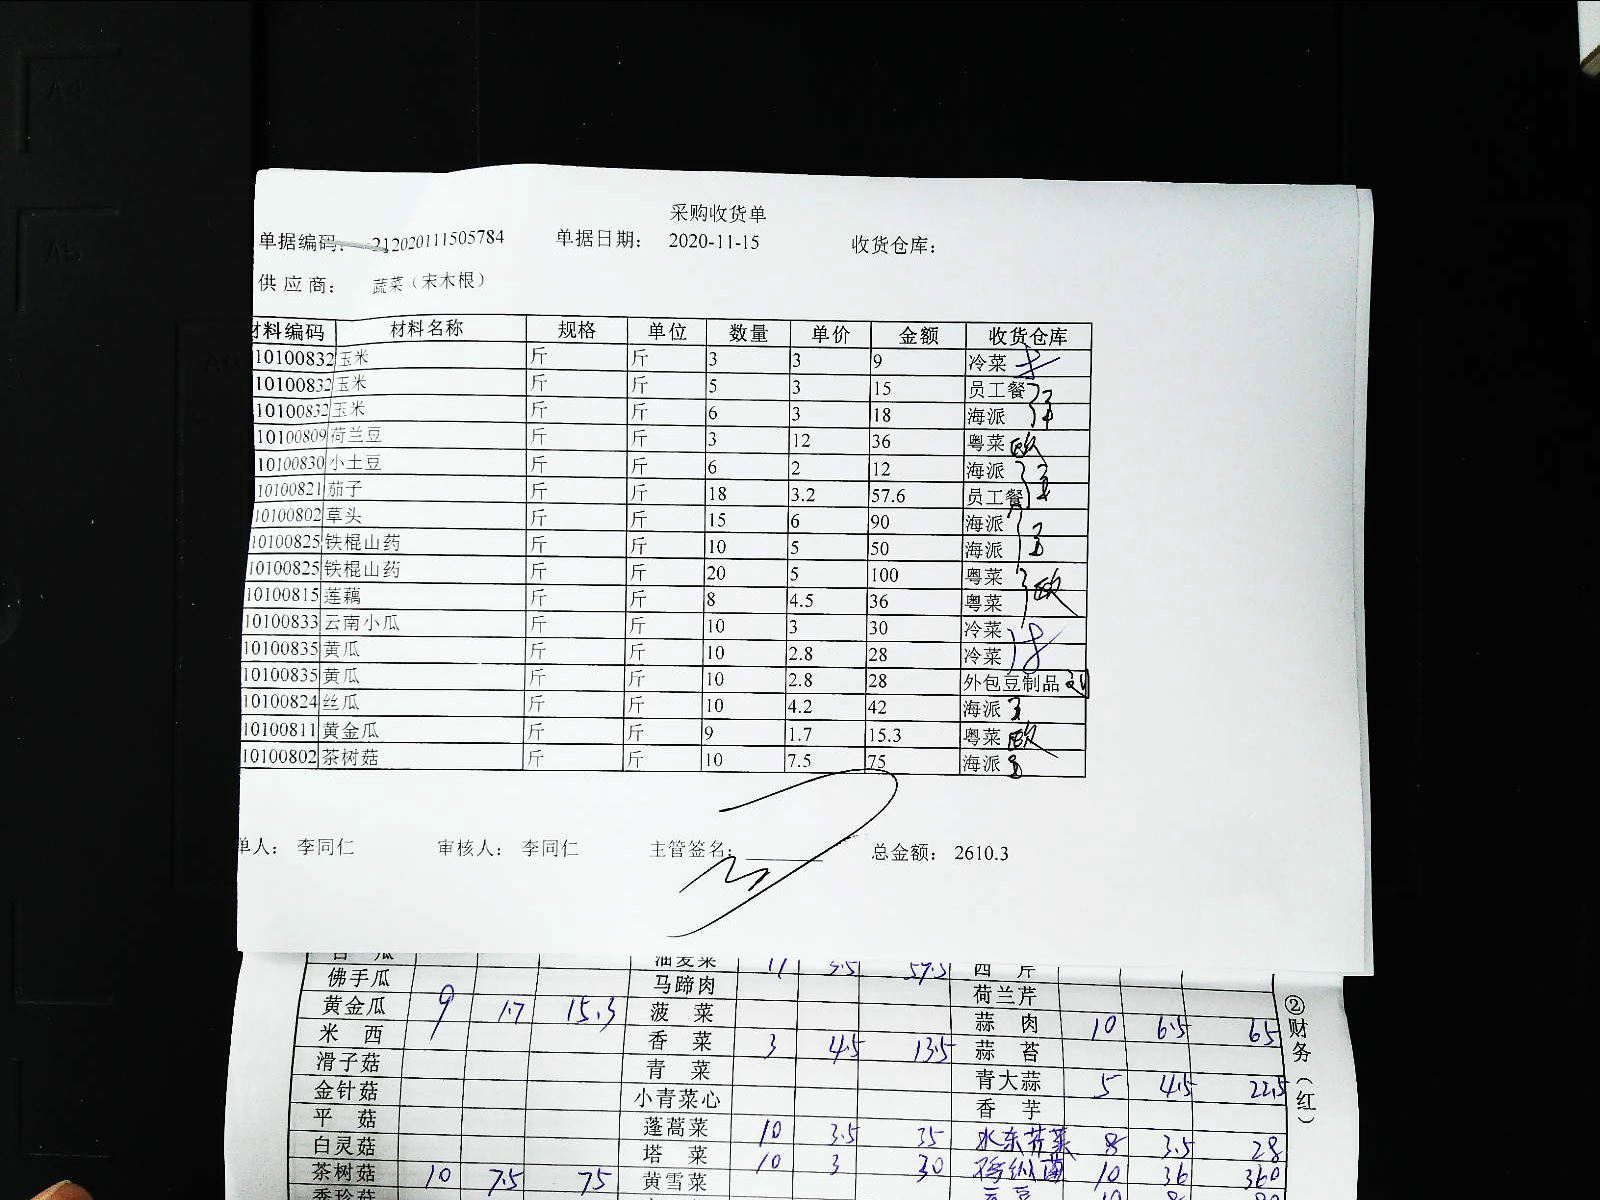 采购收货单
单据编码: 212020111505784 单据日期: 2020-11-15 收货仓库:
供应商: 蔬菜（宋木根）
材料编码 材料名称 规格 单位 数量 单价 金额 收货仓库
10100832 玉米 斤 斤 3 3 9 冷菜
10100832 玉米 斤 斤 5 3 15 员工餐
10100832 玉米 斤 斤 6 3 18 海派
10100809 荷兰豆 斤 斤 3 12 36 粤菜
10100830 小土豆 斤 斤 6 2 12 海派
10100821 茄子 斤 斤 18 3.2 57.6 员工餐
10100802 草头 斤 斤 15 6 90 海派
10100825 铁棍山药 斤 斤 10 5 50 海派
10100825 铁棍山药 斤 斤 20 5 100 粤菜
10100815 莲藕 斤 斤 8 4.5 36 粤菜
10100833 云南小瓜 斤 斤 10 3 30 冷菜
10100835 黄瓜 斤 斤 10 2.8 28 冷菜
10100835 黄瓜 斤 斤 10 2.8 28 外包豆制品
10100824 丝瓜 斤 斤 10 4.2 42 海派
10100811 黄金瓜 斤 斤 9 1.7 15.3 粤菜
10100802 茶树菇 斤 斤 10 7.5 75 海派
单人: 李同仁 审核人: 李同仁 主管签名: 总金额: 2610.3
油麦菜 11 西芹
佛手瓜 马蹄肉 荷兰芹
黄金瓜 9 1.7 15.3 菠菜 蒜肉 10 6.5 65
米西 香菜 3 4.5 13.5 蒜苔
滑子菇 青菜 青大蒜 5 4.5 22.5
金针菇 小青菜心 香芋
平菇 蓬蒿菜 10 3.5 35 水东芥菜 8 3.5 28
白灵菇 塔菜 10 3 30 10 36 360
茶树菇 10 7.5 75 黄雪菜
②财务（红）